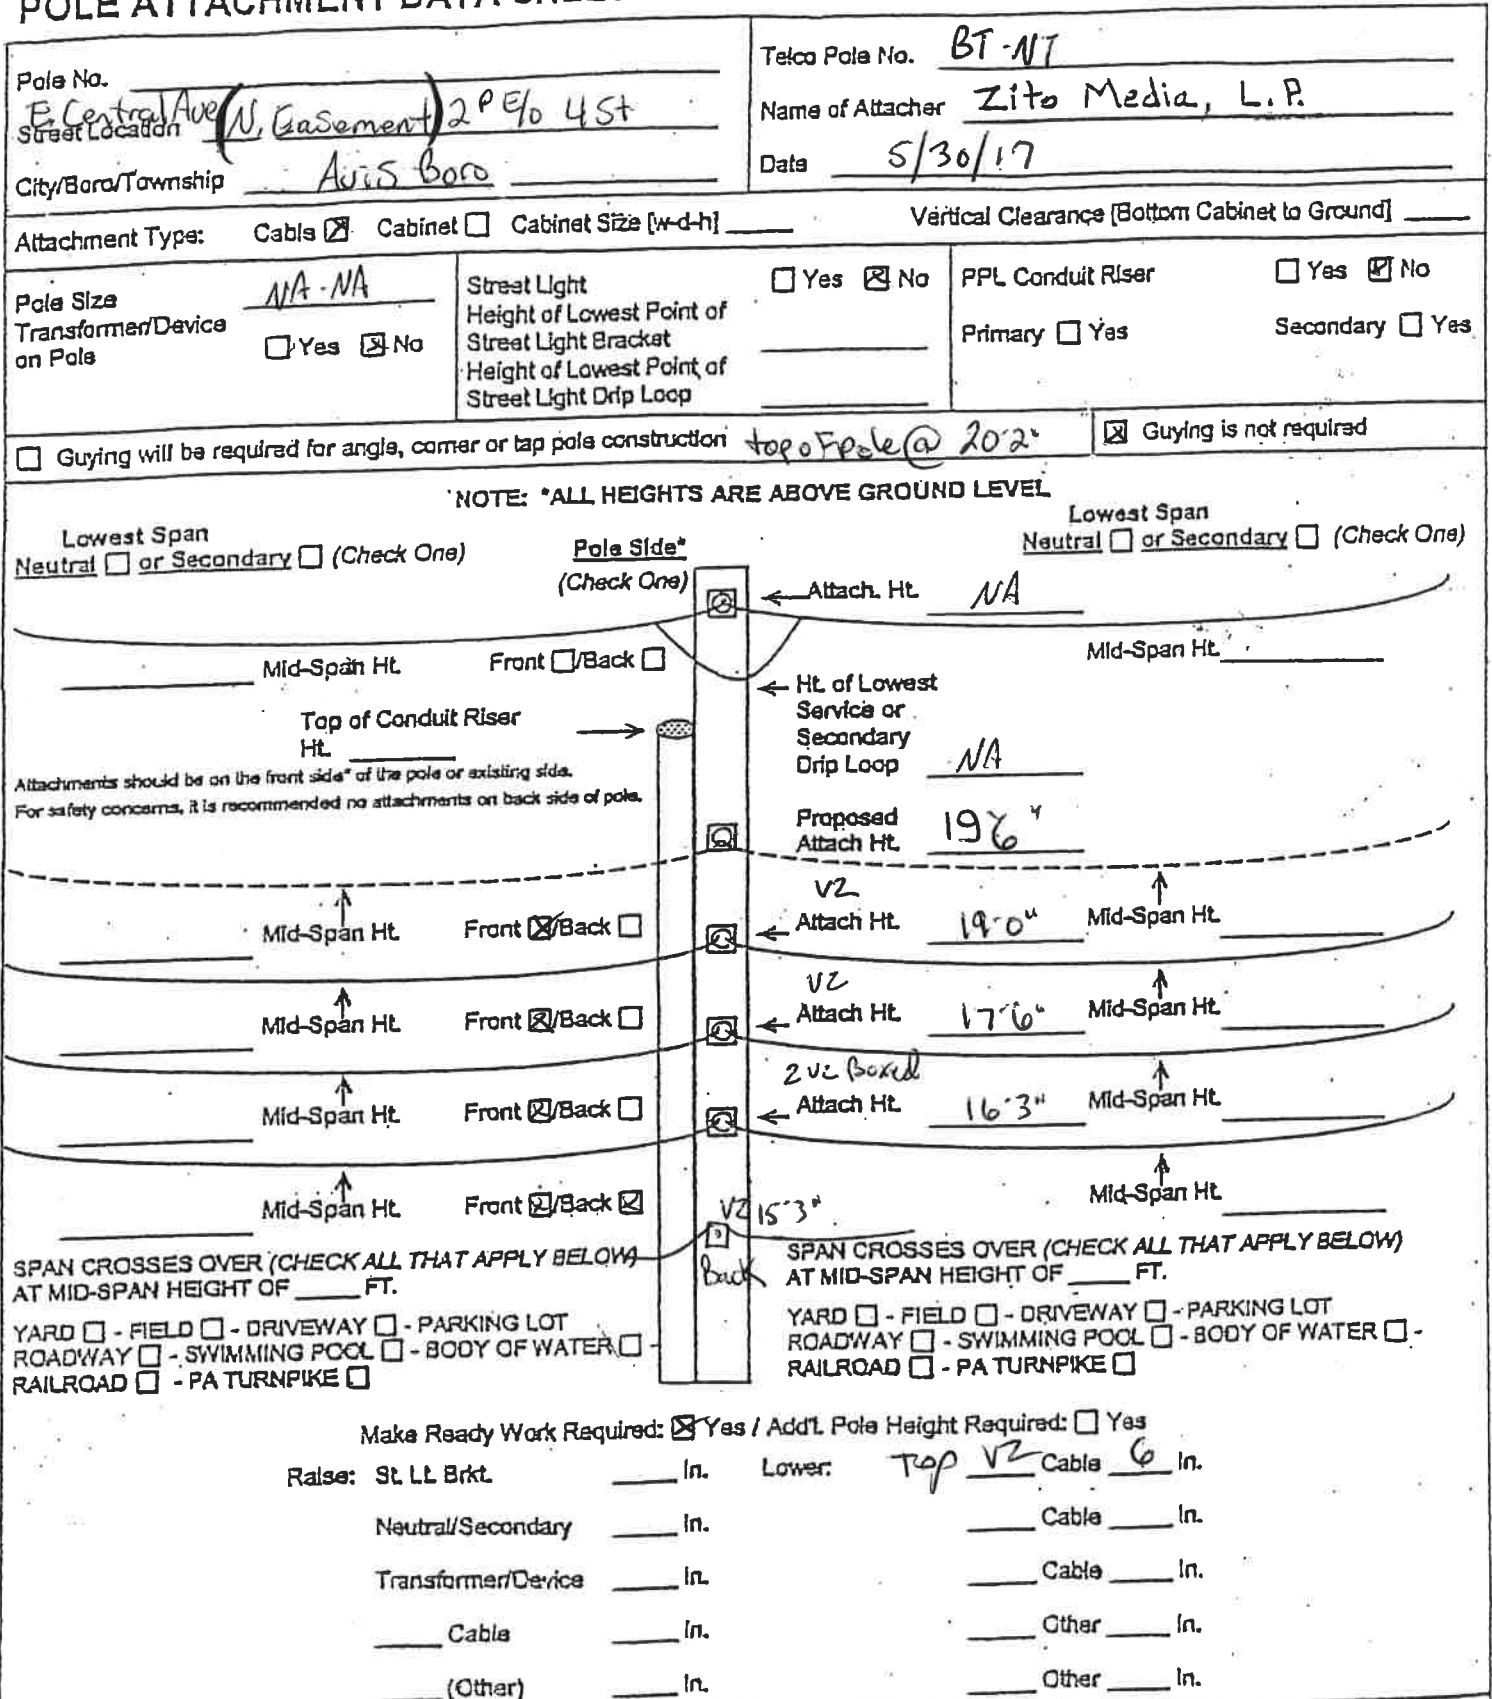 POLE ATTACHMENT DATA SHEET
Pole No.
E. Central Ave (N. Easement) 2P E/o 4 St
Street Location
City/Boro/Township Avis Boro
Telco Pole No. BT-NT
Name of Attacher Zito Media, L.P.
Date 5/30/17
Attachment Type: Cable ☒ Cabinet ☐ Cabinet Size [w-d-h] ____ Vertical Clearance [Bottom Cabinet to Ground] ____
Pole Size NA-NA
Transformer/Device
on Pole ☐ Yes ☒ No
Street Light ☐ Yes ☒ No
Height of Lowest Point of
Street Light Bracket
Height of Lowest Point of
Street Light Drip Loop
PPL Conduit Riser ☐ Yes ☒ No
Primary ☐ Yes Secondary ☐ Yes
☐ Guying will be required for angle, corner or tap pole construction top of pole @ 20'2" ☒ Guying is not required
NOTE: *ALL HEIGHTS ARE ABOVE GROUND LEVEL
Lowest Span
Neutral ☐ or Secondary ☐ (Check One)
Pole Side*
(Check One)
Lowest Span
Neutral ☐ or Secondary ☐ (Check One)
Attach. Ht. NA
Mid-Span Ht. Front ☐/Back ☐
Mid-Span Ht.
Top of Conduit Riser
Ht.
Ht. of Lowest
Service or
Secondary
Drip Loop NA
Attachments should be on the front side* of the pole or existing side.
For safety concerns, it is recommended no attachments on back side of pole.
Proposed
Attach Ht. 19'6"
V2
Mid-Span Ht. Front ☒/Back ☐ Attach Ht. 19-0" Mid-Span Ht.
V2
Mid-Span Ht. Front ☒/Back ☐ Attach Ht. 17-6" Mid-Span Ht.
2 V2 Boxed
Mid-Span Ht. Front ☒/Back ☐ Attach Ht. 16-3" Mid-Span Ht.
Mid-Span Ht. Front ☒/Back ☒ Mid-Span Ht.
V2 15-3"
Back
SPAN CROSSES OVER (CHECK ALL THAT APPLY BELOW)
AT MID-SPAN HEIGHT OF ____ FT.
YARD ☐ - FIELD ☐ - DRIVEWAY ☐ - PARKING LOT
ROADWAY ☐ - SWIMMING POOL ☐ - BODY OF WATER ☐ -
RAILROAD ☐ - PA TURNPIKE ☐
SPAN CROSSES OVER (CHECK ALL THAT APPLY BELOW)
AT MID-SPAN HEIGHT OF ____ FT.
YARD ☐ - FIELD ☐ - DRIVEWAY ☐ - PARKING LOT
ROADWAY ☐ - SWIMMING POOL ☐ - BODY OF WATER ☐ -
RAILROAD ☐ - PA TURNPIKE ☐
Make Ready Work Required: ☒ Yes / Add'l. Pole Height Required: ☐ Yes
Raise: St. Lt. Brkt. ____ In. Lower: Top V2 Cable 6 In.
Neutral/Secondary ____ In. ____ Cable ____ In.
Transformer/Device ____ In. ____ Cable ____ In.
____ Cable ____ In. ____ Other ____ In.
____ (Other) ____ In. ____ Other ____ In.